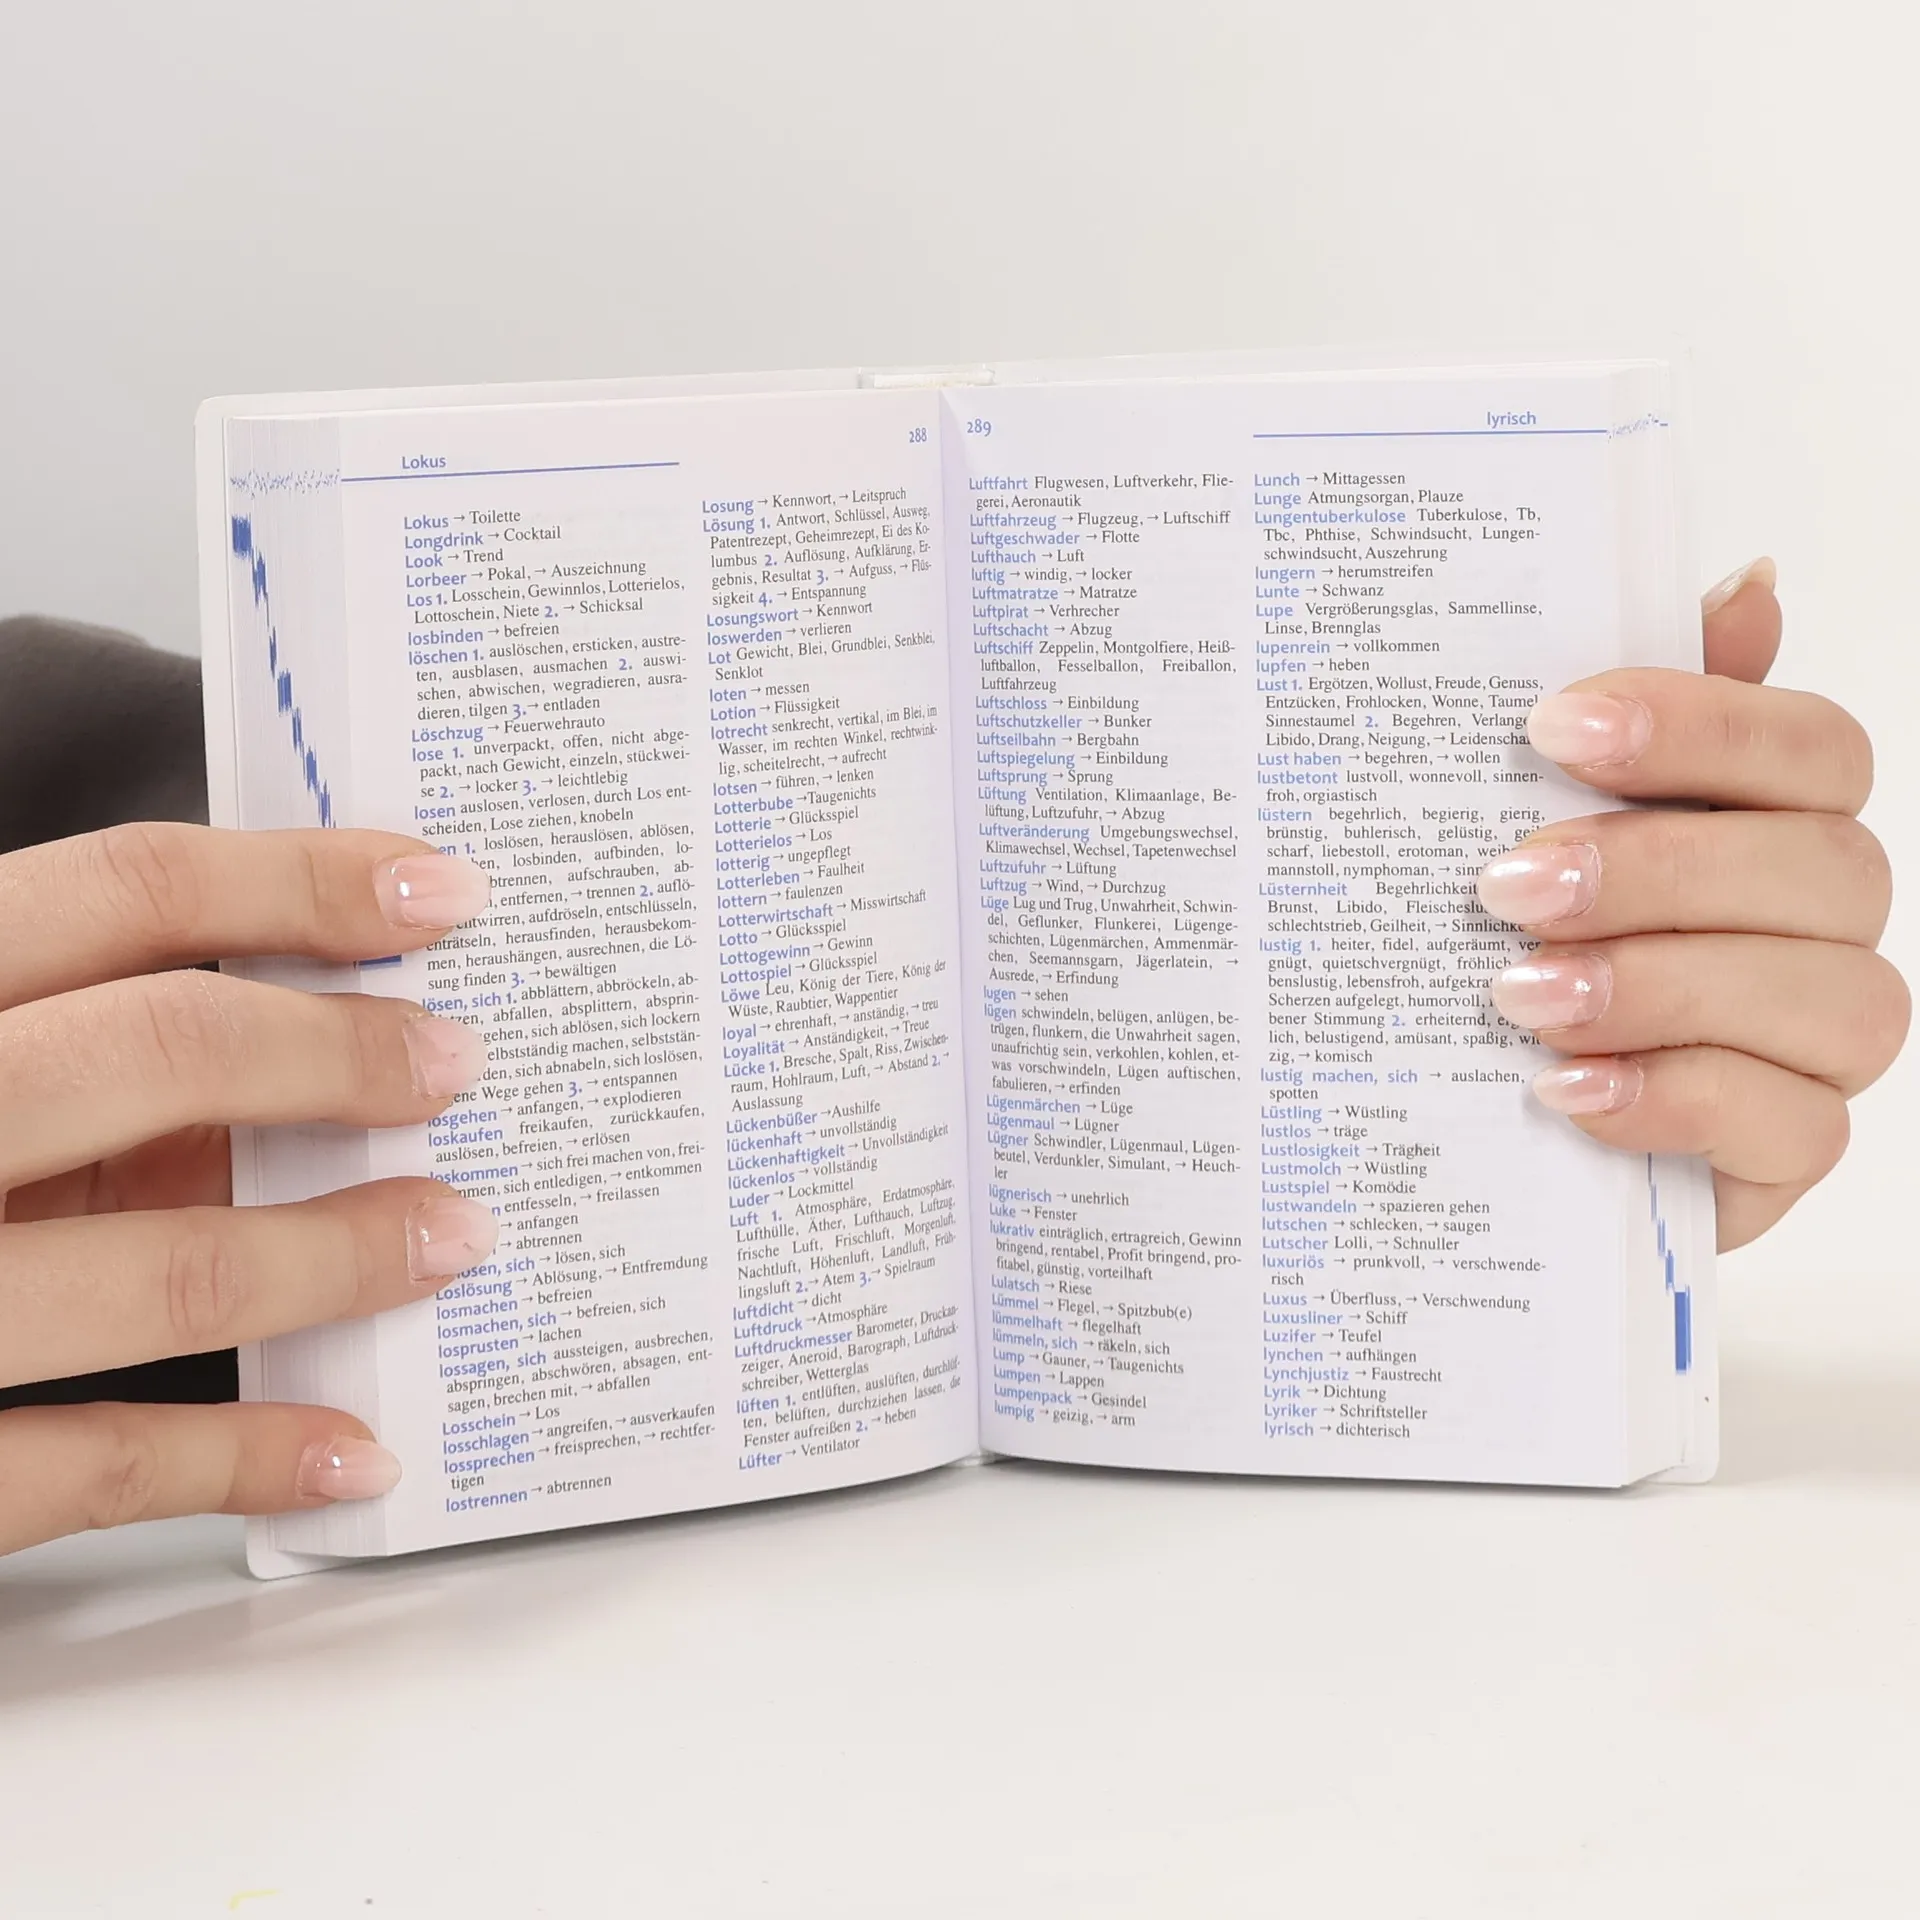 Lokus
288
Lokus → Toilette
Longdrink → Cocktail
Look → Trend
Lorbeer → Pokal, → Auszeichnung
Los 1. Losschein, Gewinnlos, Lotterielos,
Lottoschein, Niete 2. → Schicksal
losbinden → befreien
löschen 1. auslöschen, ersticken, austre-
ten, ausblasen, ausmachen 2. auswi-
schen, abwischen, wegradieren, ausra-
dieren, tilgen 3. → entladen
Löschzug → Feuerwehrauto
lose 1. unverpackt, offen, nicht abge-
packt, nach Gewicht, einzeln, stückwei-
se 2. → locker 3. → leichtlebig
losen auslosen, verlosen, durch Los ent-
scheiden, Lose ziehen, knobeln
1. loslösen, herauslösen, ablösen,
losbinden, aufbinden, lo-
aufschrauben, ab-
entfernen, → trennen 2. auflö-
entwirren, aufdröseln, entschlüsseln,
enträtseln, herausfinden, herausbekom-
men, heraushängen, ausrechnen, die Lö-
sung finden 3. → bewältigen
lösen, sich 1. abblättern, abbröckeln, ab-
abfallen, absplittern, absprin-
gehen, sich ablösen, sich lockern
selbstständig machen, selbststän-
den, sich abnabeln, sich loslösen,
Wege gehen 3. → entspannen
losgehen → anfangen, → explodieren
loskaufen freikaufen, zurückkaufen,
auslösen, befreien, → erlösen
loskommen → sich frei machen von, frei-
sich entledigen, → entkommen
entfesseln, → freilassen
→ anfangen
→ abtrennen
sich → lösen, sich
Loslösung → Ablösung, → Entfremdung
losmachen → befreien
losmachen, sich → befreien, sich
losprusten → lachen
lossagen, sich aussteigen, ausbrechen,
abspringen, abschwören, absagen, ent-
sagen, brechen mit, → abfallen
Losschein → Los
losschlagen → angreifen, → ausverkaufen
lossprechen → freisprechen, → rechtfer-
tigen
lostrennen → abtrennen
Losung → Kennwort, → Leitspruch
Lösung 1. Antwort, Schlüssel, Ausweg,
Patentrezept, Geheimrezept, Ei des Ko-
lumbus 2. Auflösung, Aufklärung, Er-
gebnis, Resultat 3. → Aufguss, → Flüs-
sigkeit 4. → Entspannung
Losungswort → Kennwort
loswerden → verlieren
Lot Gewicht, Blei, Grundblei, Senkblei,
Senklot
loten → messen
Lotion → Flüssigkeit
lotrecht senkrecht, vertikal, im Blei, im
Wasser, im rechten Winkel, rechtwink-
lig, scheitelrecht, → aufrecht
lotsen → führen, → lenken
Lotterbube → Taugenichts
Lotterie → Glücksspiel
Lotterielos → Los
lotterig → ungepflegt
Lotterleben → Faulheit
lottern → faulenzen
Lotterwirtschaft → Misswirtschaft
Lotto → Glücksspiel
Lottogewinn → Gewinn
Lottospiel → Glücksspiel
Löwe Leu, König der Tiere, König der
Wüste, Raubtier, Wappentier
loyal → ehrenhaft, → anständig, → treu
Loyalität → Anständigkeit, → Treue
Lücke 1. Bresche, Spalt, Riss, Zwischen-
raum, Hohlraum, Luft, → Abstand 2. →
Auslassung
Lückenbüßer → Aushilfe
lückenhaft → unvollständig
Lückenhaftigkeit → Unvollständigkeit
lückenlos → vollständig
Luder → Lockmittel
Luft 1. Atmosphäre, Erdatmosphäre,
Lufthülle, Äther, Lufthauch, Luftzug,
frische Luft, Frischluft, Morgenluft,
Nachtluft, Höhenluft, Landluft, Früh-
lingsluft 2. → Atem 3. → Spielraum
luftdicht → dicht
Luftdruck → Atmosphäre
Luftdruckmesser Barometer, Druckan-
zeiger, Aneroid, Barograph, Luftdruck-
schreiber, Wetterglas
lüften 1. entlüften, auslüften, durchlüf-
ten, belüften, durchziehen lassen, die
Fenster aufreißen 2. → heben
Lüfter → Ventilator
289
lyrisch
Luftfahrt Flugwesen, Luftverkehr, Flie-
gerei, Aeronautik
Luftfahrzeug → Flugzeug, → Luftschiff
Luftgeschwader → Flotte
Lufthauch → Luft
luftig → windig, → locker
Luftmatratze → Matratze
Luftpirat → Verbrecher
Luftschacht → Abzug
Luftschiff Zeppelin, Montgolfiere, Heiß-
luftballon, Fesselballon, Freiballon,
Luftfahrzeug
Luftschloss → Einbildung
Luftschutzkeller → Bunker
Luftseilbahn → Bergbahn
Luftspiegelung → Einbildung
Luftsprung → Sprung
Lüftung Ventilation, Klimaanlage, Be-
lüftung, Luftzufuhr, → Abzug
Luftveränderung Umgebungswechsel,
Klimawechsel, Wechsel, Tapetenwechsel
Luftzufuhr → Lüftung
Luftzug → Wind, → Durchzug
Lüge Lug und Trug, Unwahrheit, Schwin-
del, Geflunker, Flunkerei, Lügenge-
schichten, Lügenmärchen, Ammenmär-
chen, Seemannsgarn, Jägerlatein, →
Ausrede, → Erfindung
lugen → sehen
lügen schwindeln, belügen, anlügen, be-
trügen, flunkern, die Unwahrheit sagen,
unaufrichtig sein, verkohlen, kohlen, et-
was vorschwindeln, Lügen auftischen,
fabulieren, → erfinden
Lügenmärchen → Lüge
Lügenmaul → Lügner
Lügner Schwindler, Lügenmaul, Lügen-
beutel, Verdunkler, Simulant, → Heuch-
ler
lügnerisch → unehrlich
Luke → Fenster
lukrativ einträglich, ertragreich, Gewinn
bringend, rentabel, Profit bringend, pro-
fitabel, günstig, vorteilhaft
Lulatsch → Riese
Lümmel → Flegel, → Spitzbub(e)
lümmelhaft → flegelhaft
lümmeln, sich → räkeln, sich
Lump → Gauner, → Taugenichts
Lumpen → Lappen
Lumpenpack → Gesindel
lumpig → geizig, → arm
Lunch → Mittagessen
Lunge Atmungsorgan, Plauze
Lungentuberkulose Tuberkulose, Tb,
Tbc, Phthise, Schwindsucht, Lungen-
schwindsucht, Auszehrung
lungern → herumstreifen
Lunte → Schwanz
Lupe Vergrößerungsglas, Sammellinse,
Linse, Brennglas
lupenrein → vollkommen
lupfen → heben
Lust 1. Ergötzen, Wollust, Freude, Genuss,
Entzücken, Frohlocken, Wonne, Taumel
Sinnestaumel 2. Begehren,
Libido, Drang, Neigung, →
Lust haben → begehren, → wollen
lustbetont lustvoll, wonnevoll, sinnen-
froh, orgiastisch
lüstern begehrlich, begierig, gierig,
brünstig, buhlerisch, gelüstig,
scharf, liebestoll, erotoman,
mannstoll, nymphoman, →
Lüsternheit Begehrlichkeit
Brunst, Libido,
schlechtstrieb, Geilheit, →
lustig 1. heiter, fidel, aufgeräumt, ver
gnügt, quietschvergnügt, fröhlich
benslustig, lebensfroh,
Scherzen aufgelegt, humorvoll,
bener Stimmung 2. erheiternd,
lich, belustigend, amüsant, spaßig, wit
zig, → komisch
lustig machen, sich → auslachen,
spotten
Lüstling → Wüstling
lustlos → träge
Lustlosigkeit → Trägheit
Lustmolch → Wüstling
Lustspiel → Komödie
lustwandeln → spazieren gehen
lutschen → schlecken, → saugen
Lutscher Lolli, → Schnuller
luxuriös → prunkvoll, → verschwende-
risch
Luxus → Überfluss, → Verschwendung
Luxusliner → Schiff
Luzifer → Teufel
lynchen → aufhängen
Lynchjustiz → Faustrecht
Lyrik → Dichtung
Lyriker → Schriftsteller
lyrisch → dichterisch